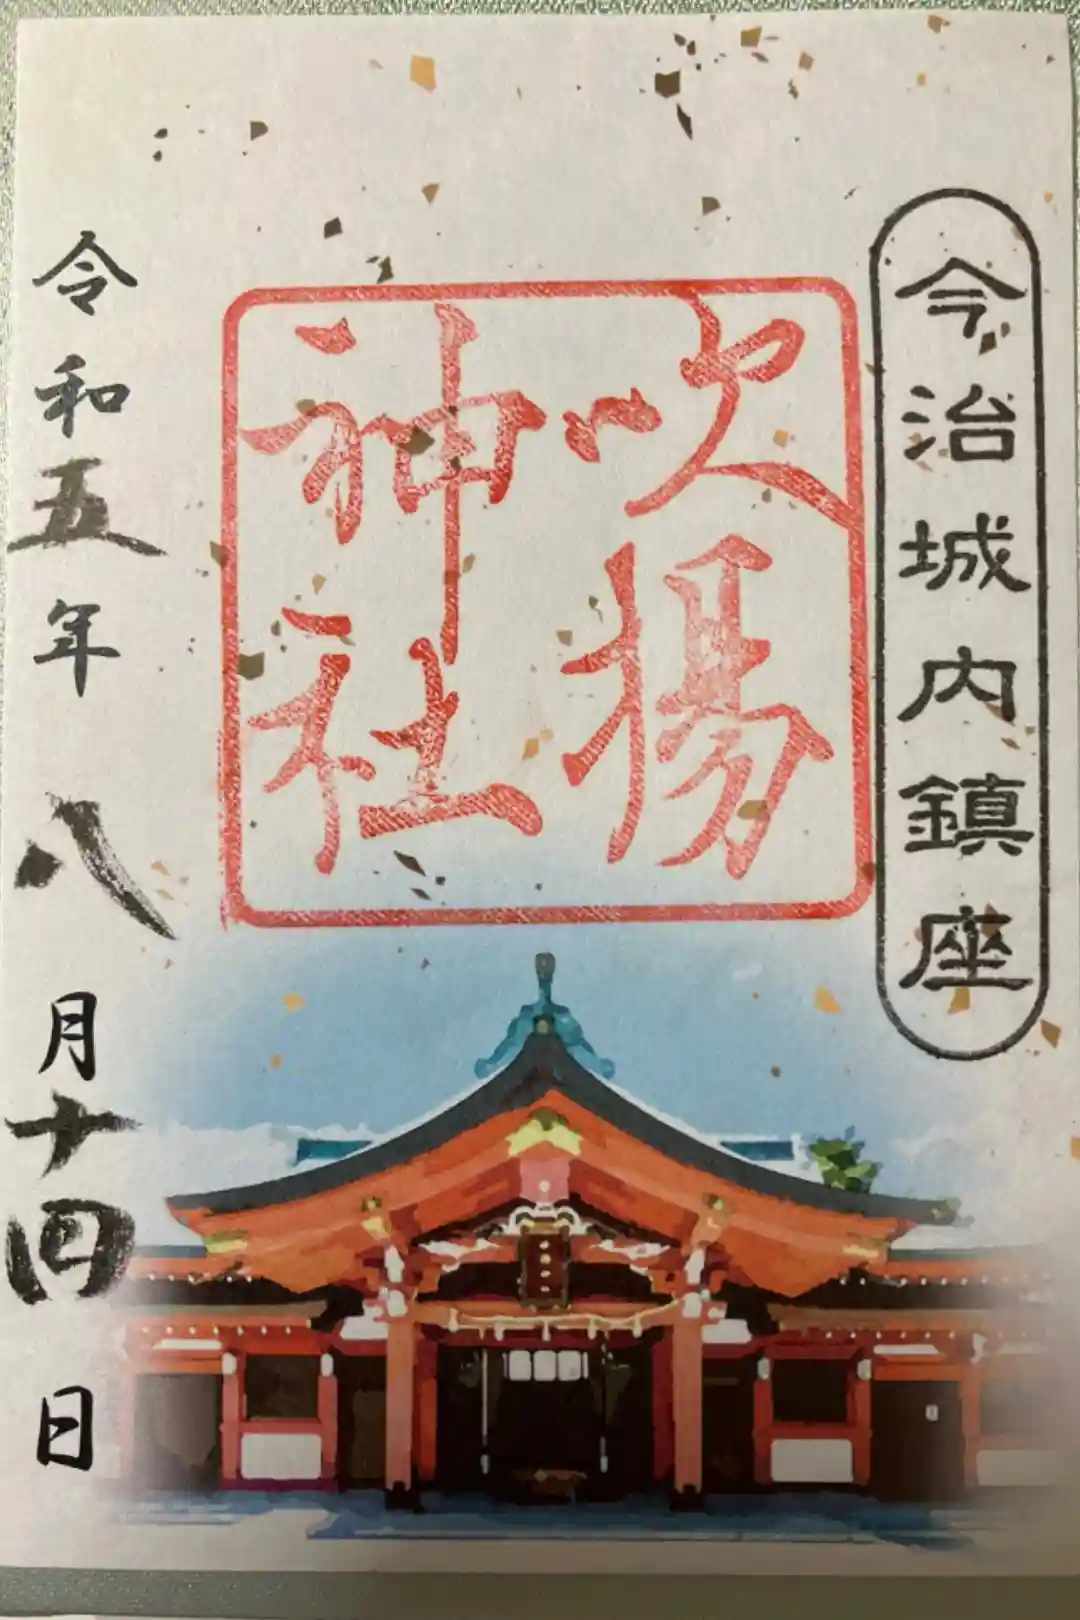 今治城内鎮座
吹揚
神社
令和五年八月十四日